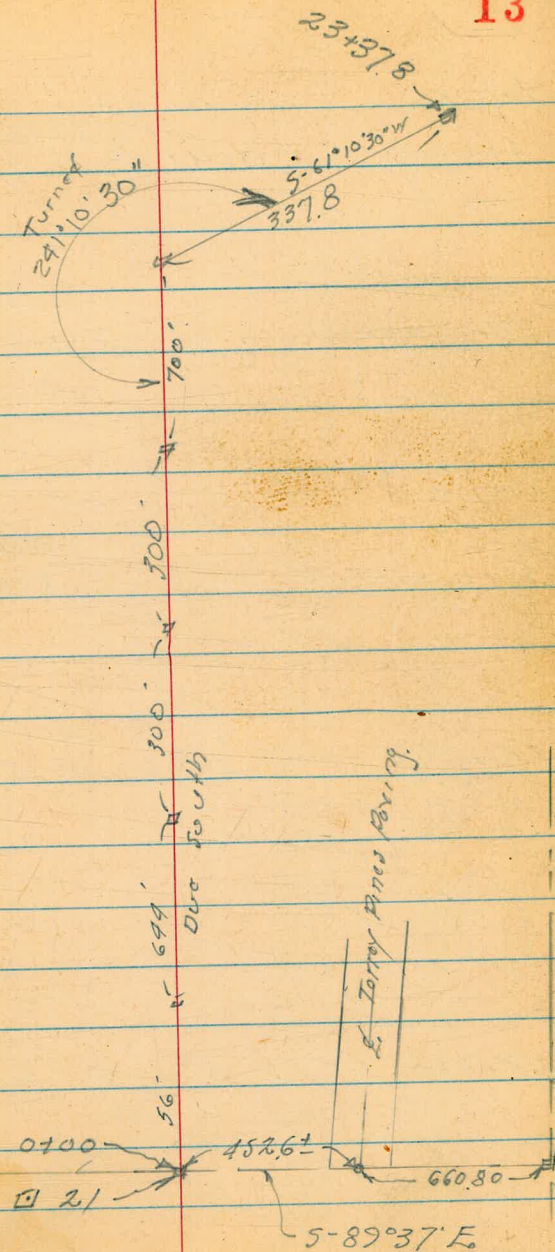 13
23+37.8
S-61°10'30"W
337.8
Turned
241°10'30"
700'
300'
300'
Due South
644'
56'
℄ Torrey Pines Paving.
0+00
452.6±
660.80
⊡ 21
S-89°37'E